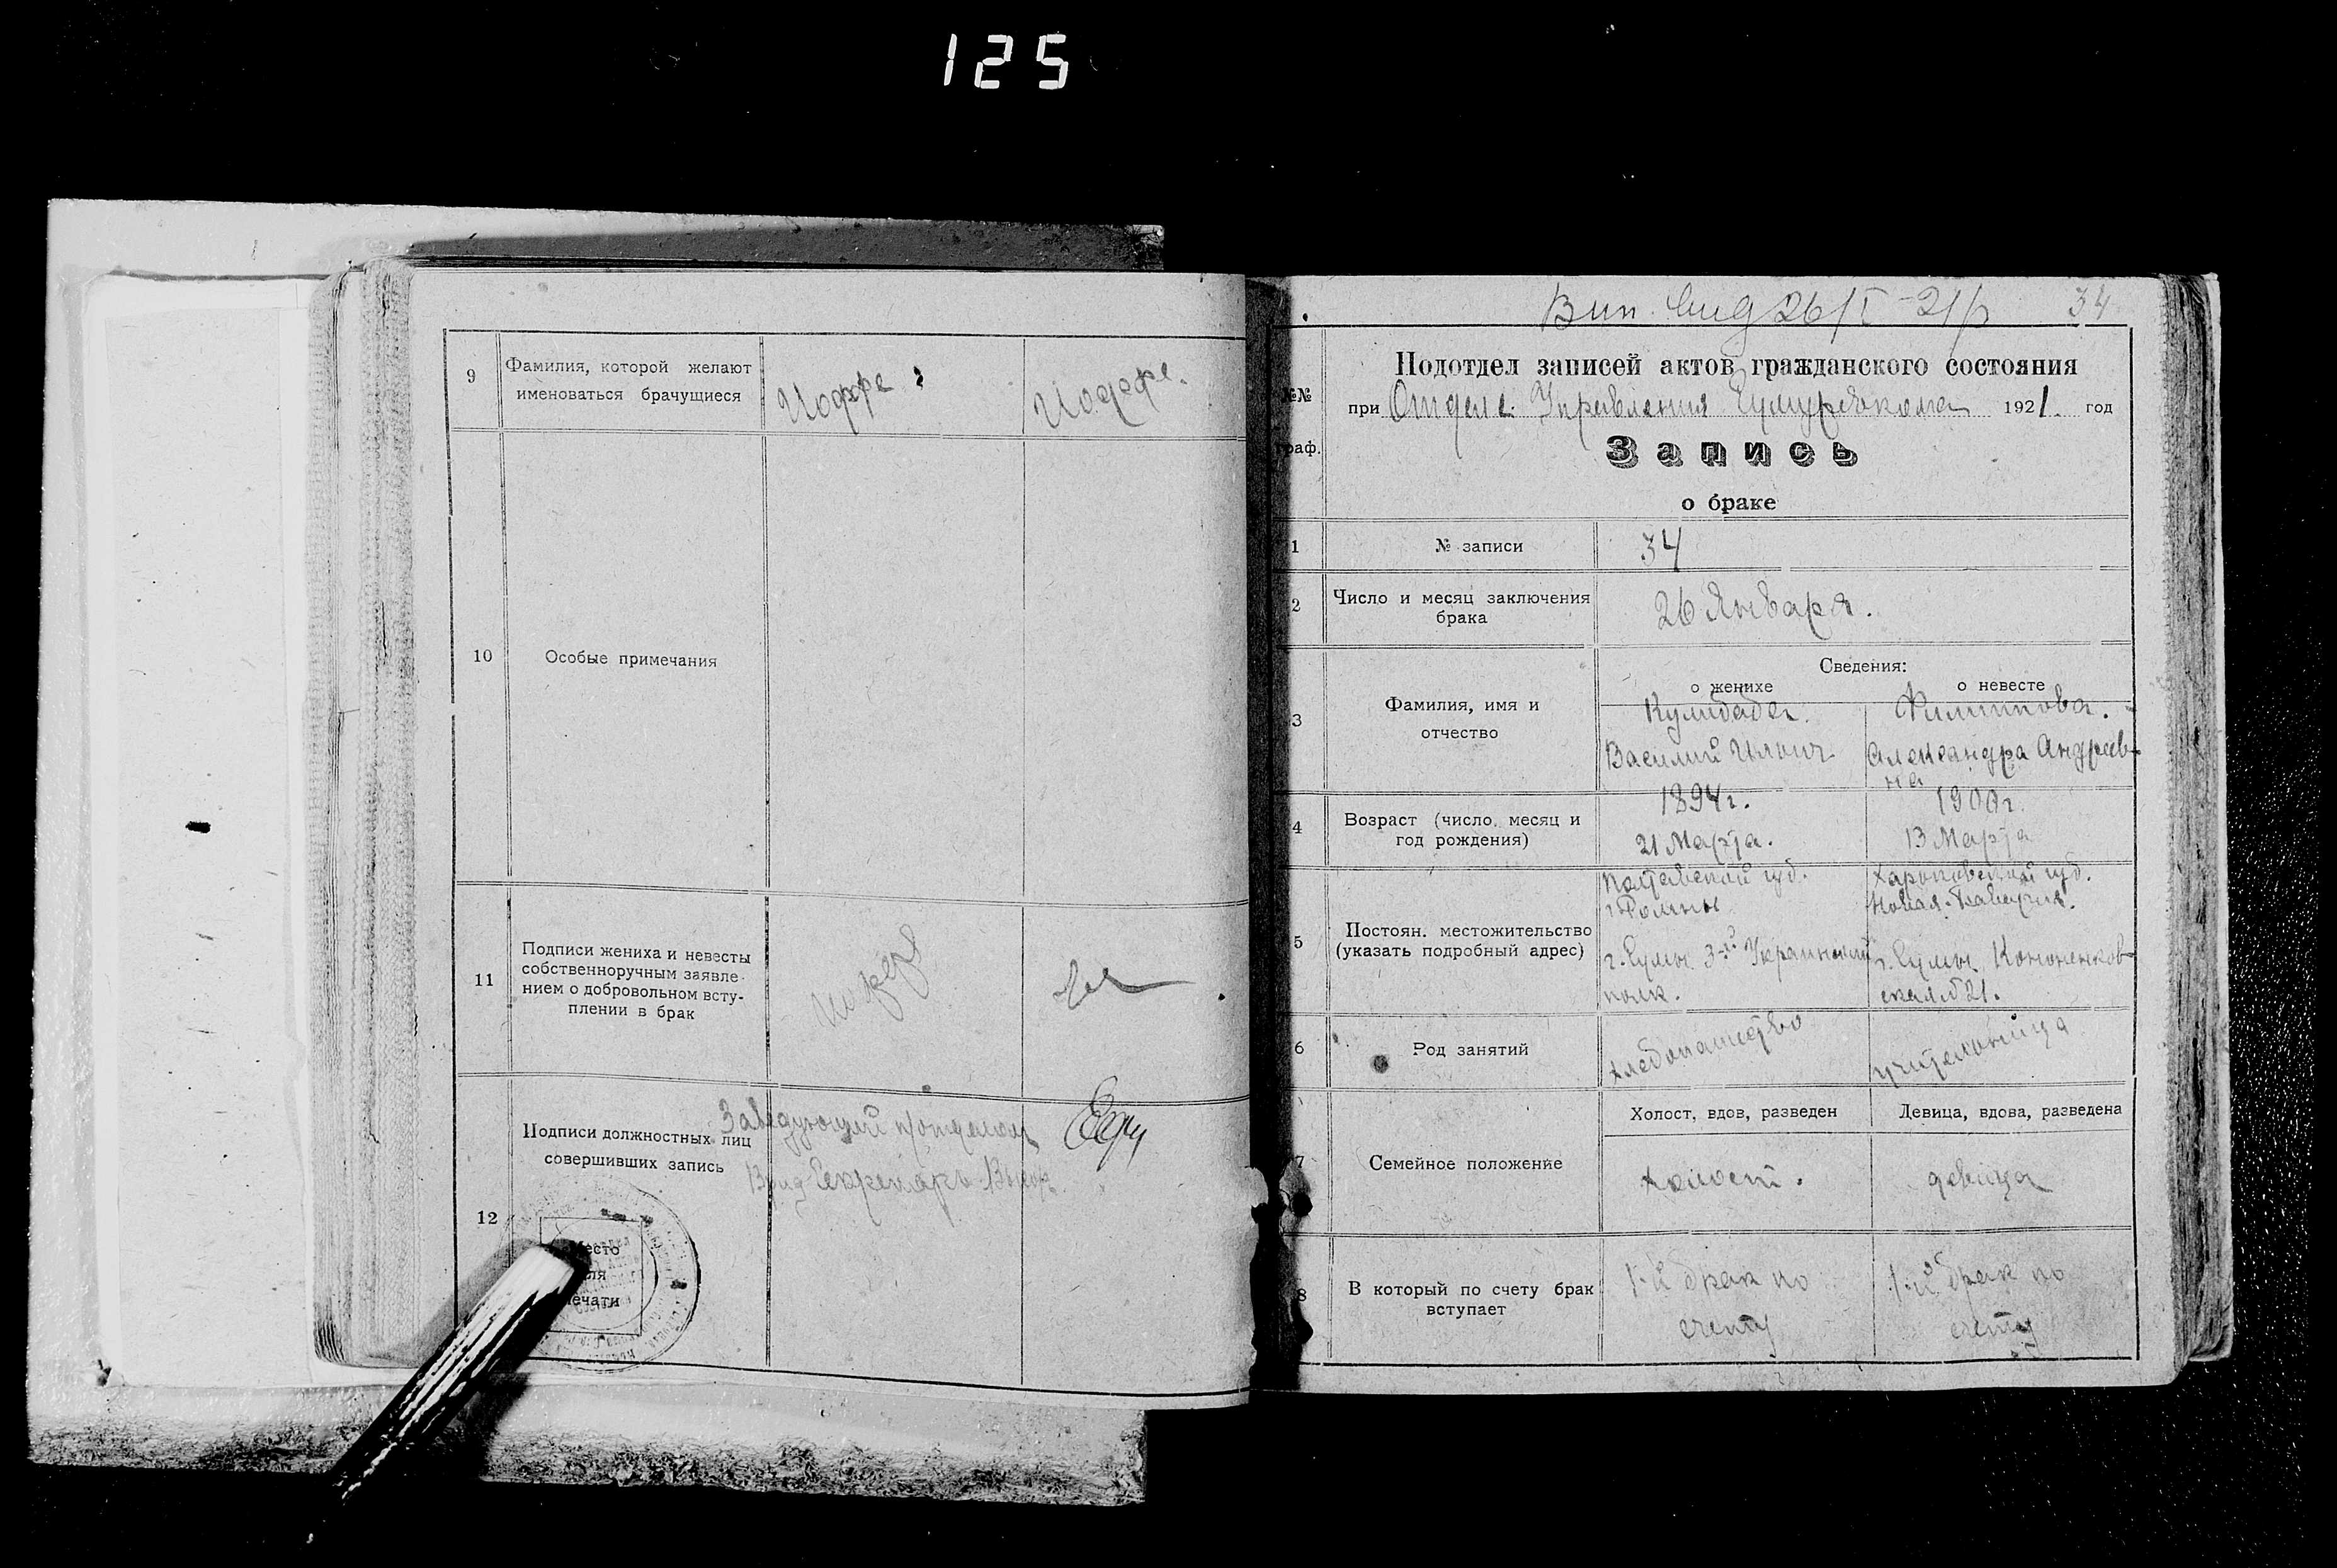 125
9
Фамилия, которой желают
именоваться брачущиеся
Иоффе
Иоффе.
10
Особые примечания
11
Подписи жениха и невесты
собственноручным заявле-
нием о добровольном всту-
плении в брак
12
Подписи должностных лиц
совершивших запись
Заведующий п/отделом
Секретарь
Место
для
печати
26/I-21 34
№№
граф.
Подотдел записей актов гражданского состояния
при Отделе Управления 1921. год
Запись
о браке
1
№ записи
34
2
Число и месяц заключения
брака
26 Января.
Сведения:
о женихе
о невесте
3
Фамилия, имя и
отчество
Василий Ильич
Филиппова.
Александра Андреев-
на
4
Возраст (число, месяц и
год рождения)
1894 г.
21 Марта.
1900 г.
13 Марта
5
Постоян. местожительство
(указать подробный адрес)
Полтавской губ.
г. Ромны
г. Сумы 3-й Украинский
полк.
Харьковской губ.
Новая
г. Сумы Кононенков-
ская № 21.
6
Род занятий
хлебопашество
учительница
7
Семейное положение
Холост, вдов, разведен
Девица, вдова, разведена
холост.
девица
8
В который по счету брак
вступает
1-й брак по
счету
1-й брак по
счету